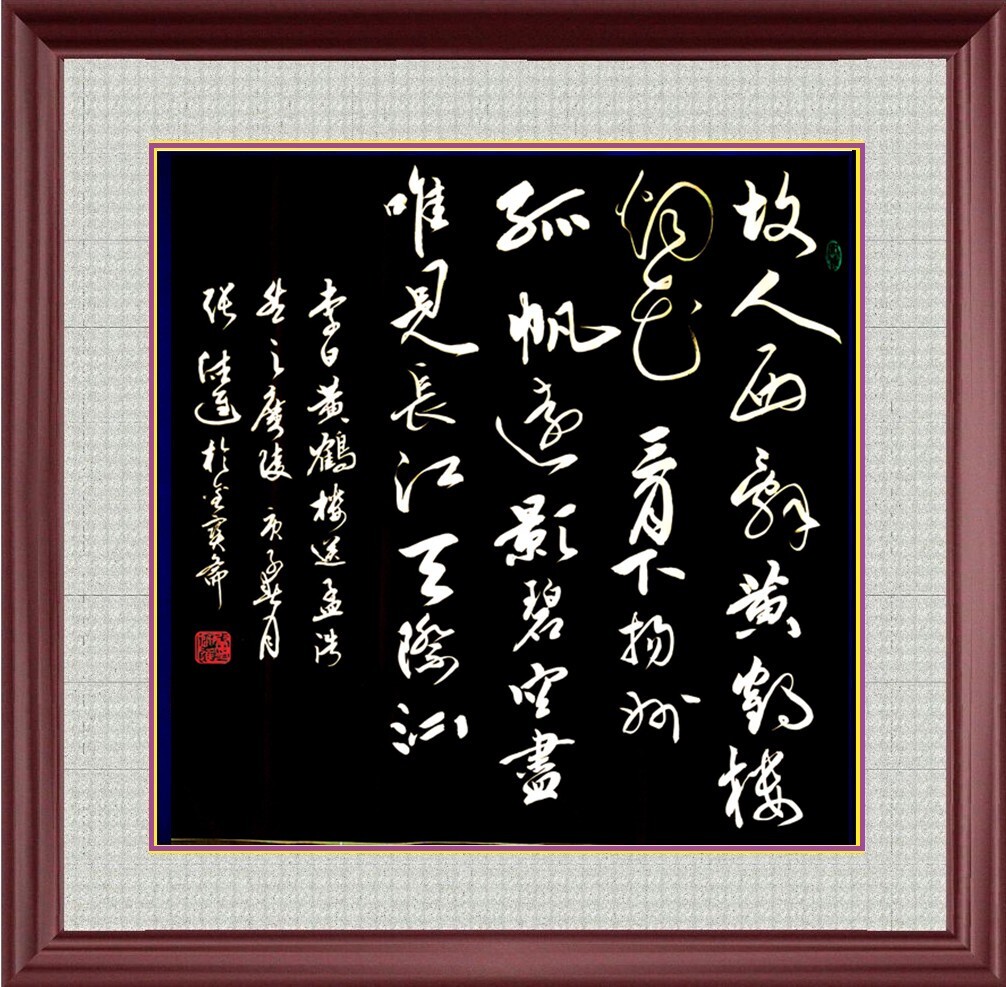 故人西辭黄鶴樓
烟花三月下揚州
孤帆遠影碧空盡
唯見長江天際流
李白黄鶴樓送孟浩
然之廣陵 庚子春月
張 於金寶齋